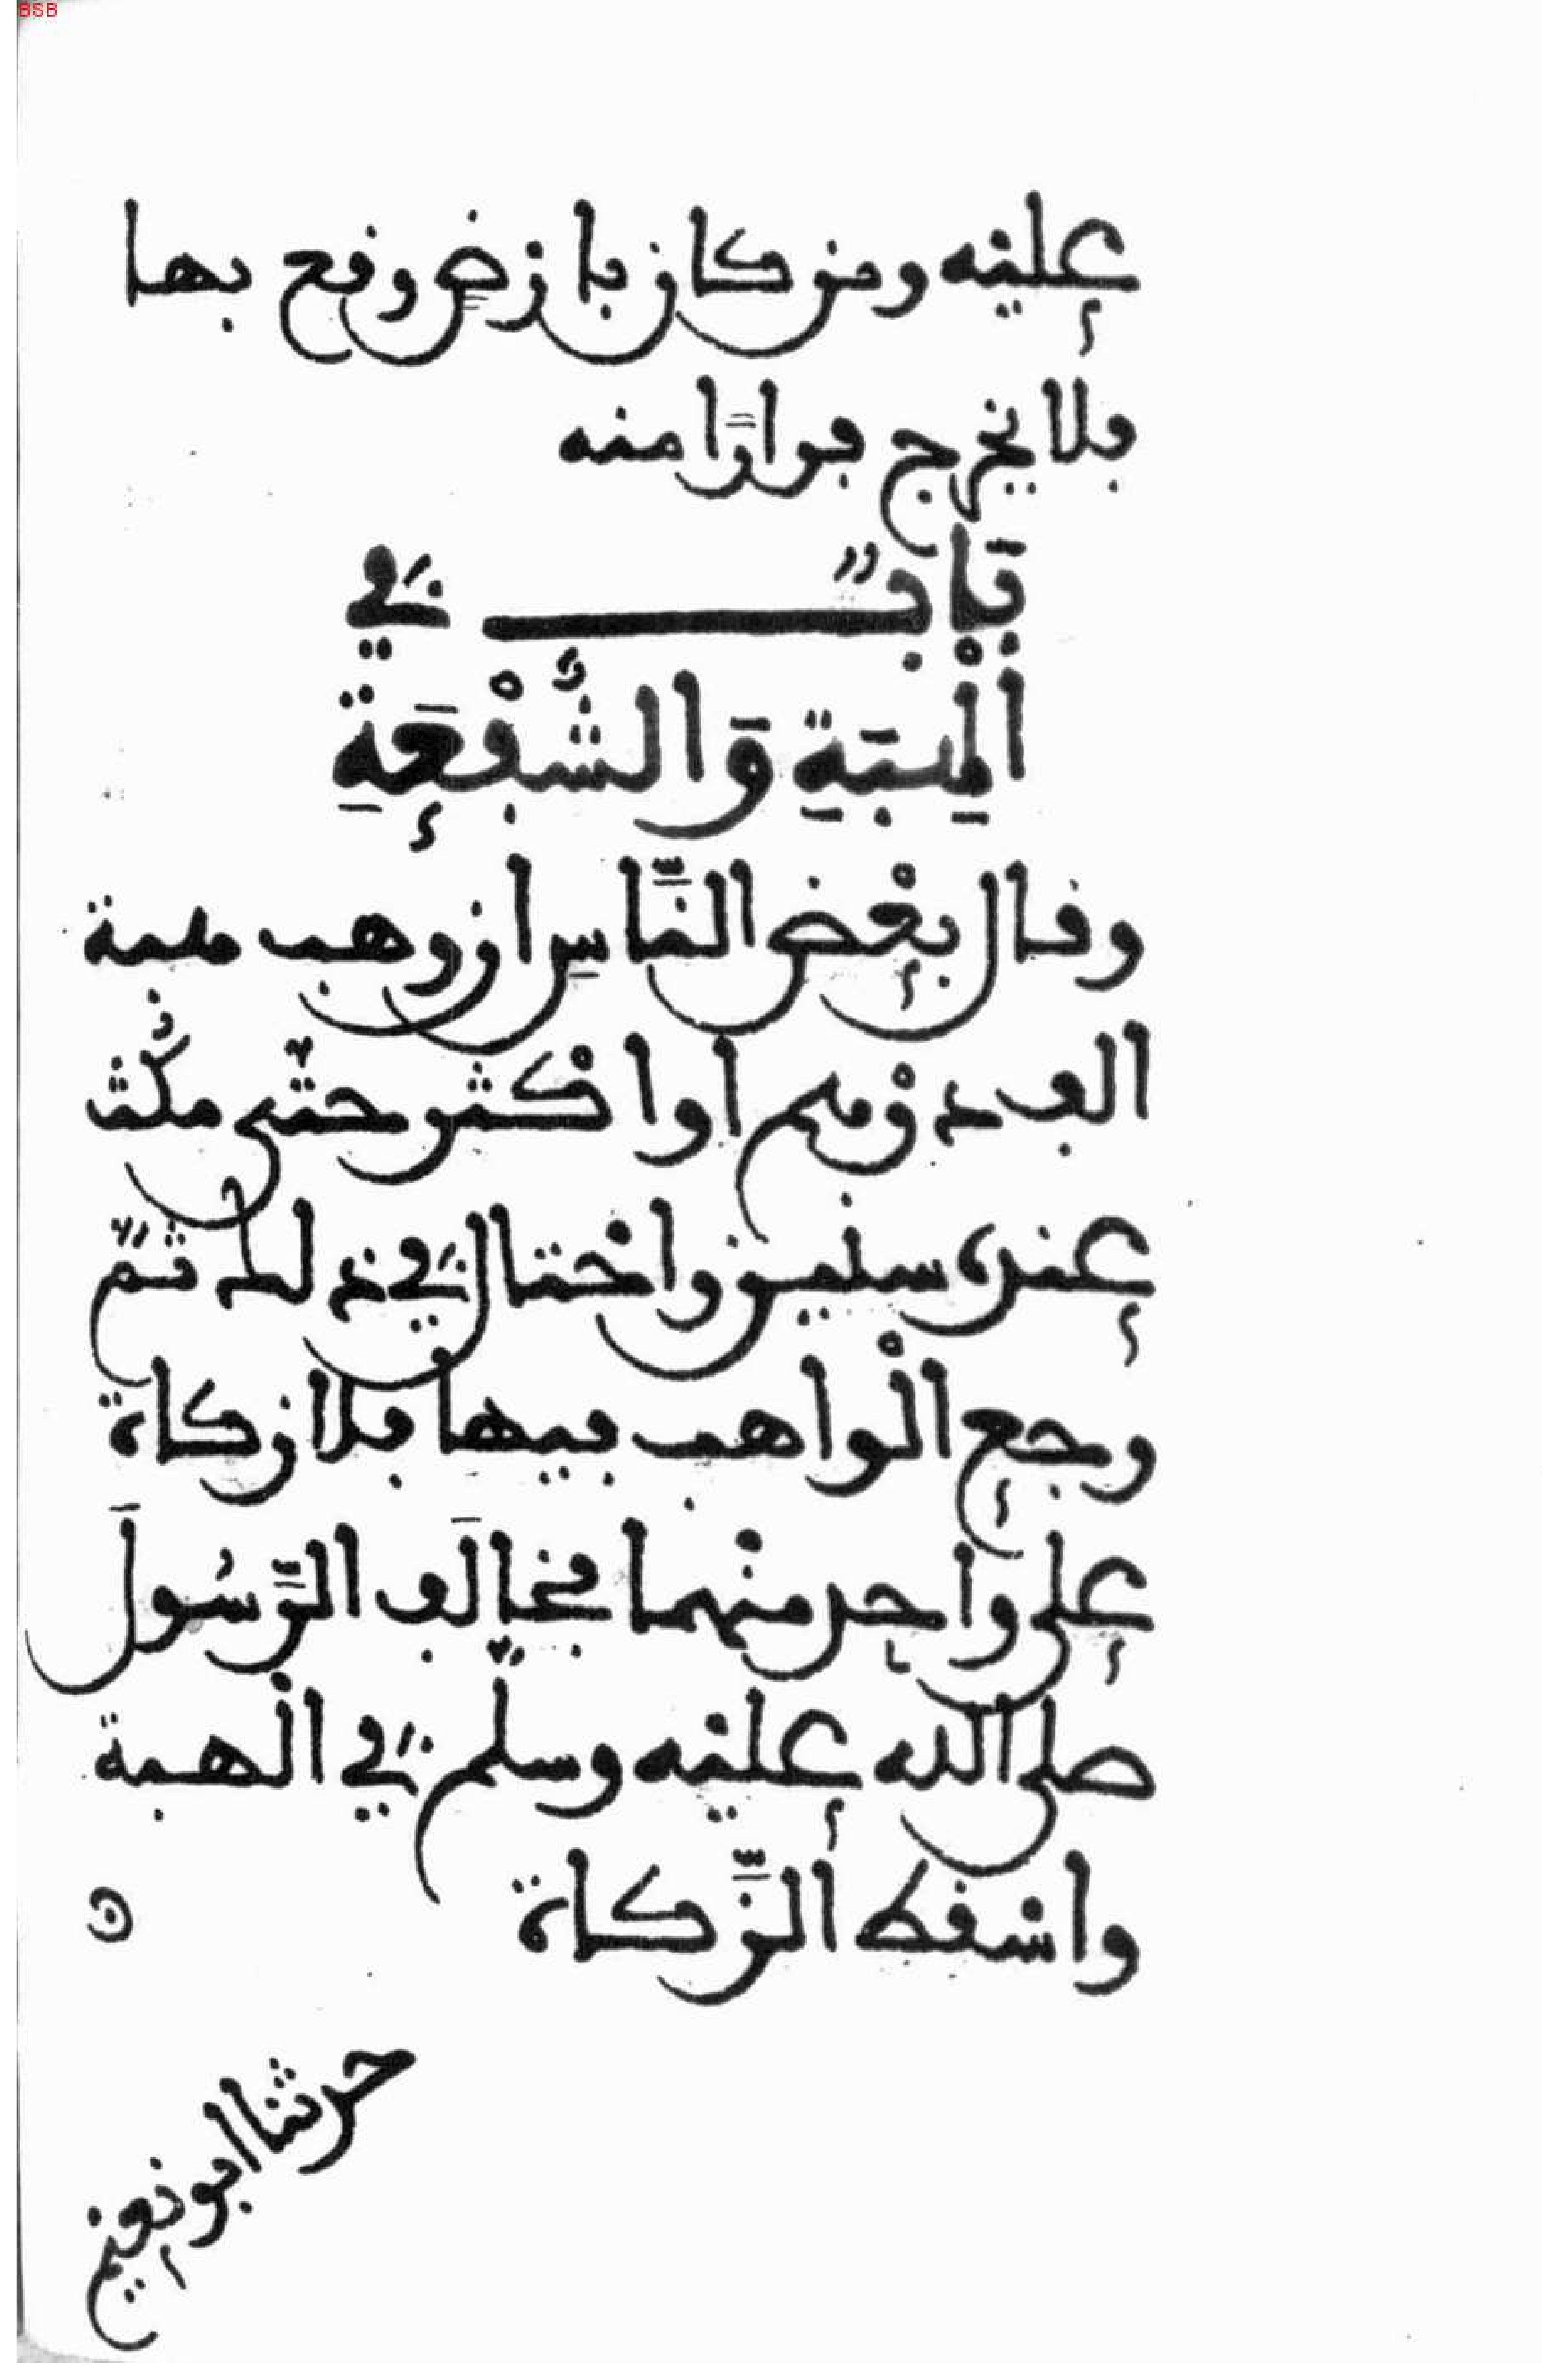 BSB
عليه ومن كان بارض وقع بها
فلا يخرج فرارًا منه
بَابٌ فِي
الْهِبَةِ وَالشُّفْعَةِ
وقال بعْض النَّاسِ ان وهب هبة
الف درْهم او اكْثر حتّى مكُث
عنده سنين واحْتال في ذلك ثمّ
رجع الْواهب فيها فلا زكاة
على واحد منْهما فخالفَ الرَّسُولَ
صلى الله عليْه وسلّم في الْهبة
واسْقط الزَّكاة
حدثنا ابو نعيم